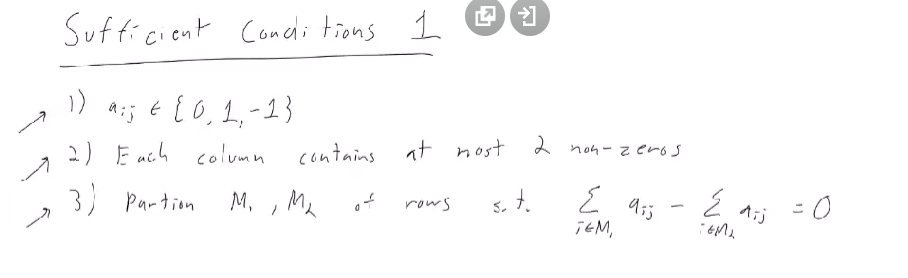 Sufficient Conditions 1
1) aᵢⱼ ∈ {0, 1, -1}
2) Each column contains at most 2 non-zeros
3) Partion M₁, M₂ of rows s.t. ∑_{i∈M₁} aᵢⱼ - ∑_{i∈M₂} aᵢⱼ = 0